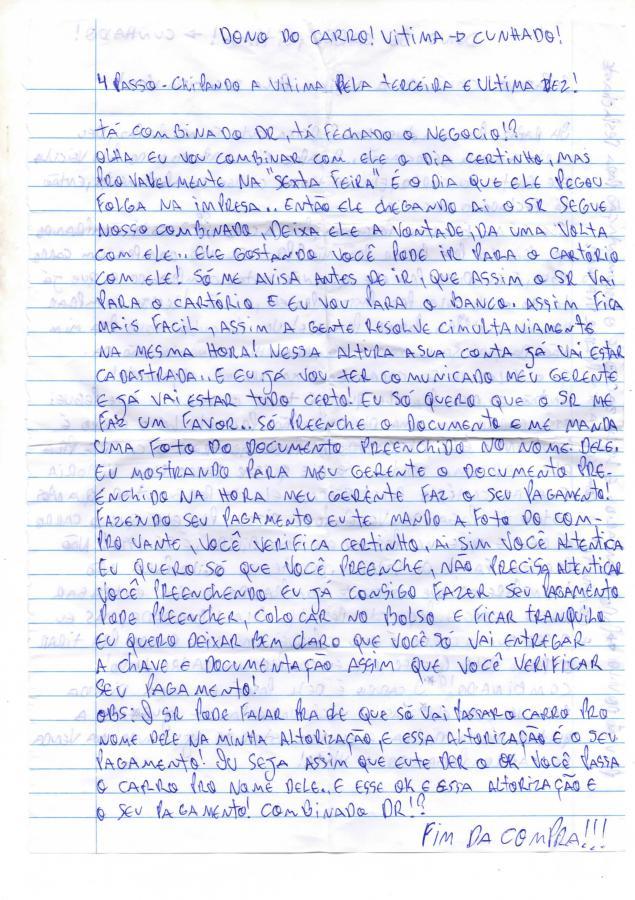 DONO DO CARRO! VITIMA → CUNHADO!
4 PASSO - CHIPANDO A VITIMA PELA TERCEIRA E ULTIMA VEZ!
TÁ COMBINADO DR, TÁ FECHADO O NEGOCIO!?
OLHA EU VOU COMBINAR COM ELE O DIA CERTINHO, MAS
PROVAVELMENTE NA "SEXTA FEIRA" É O DIA QUE ELE PEGOU
FOLGA NA IMPRESA.. ENTÃO ELE CHEGANDO AI O SR SEGUE
NOSSO COMBINADO, DEIXA ELE A VONTADE, DA UMA VOLTA
COM ELE.. ELE GOSTANDO VOCÊ PODE IR PARA O CARTÓRIO
COM ELE! SÓ ME AVISA ANTES DE IR, QUE ASSIM O SR VAI
PARA O CARTÓRIO E EU VOU PARA O BANCO. ASSIM FICA
MAIS FACIL, ASSIM A GENTE RESOLVE CIMULTANIAMENTE
NA MESMA HORA! NESSA ALTURA A SUA CONTA JÁ VAI ESTAR
CADASTRADA.. E EU JÁ VOU TER COMUNICADO MEU GERENTE
E JÁ VAI ESTAR TUDO CERTO! EU SÓ QUERO QUE O SR ME
FAZ UM FAVOR.. SÓ PREENCHE O DOCUMENTO E ME MANDA
UMA FOTO DO DOCUMENTO PREENCHIDO NO NOME DELE.
EU MOSTRANDO PARA MEU GERENTE O DOCUMENTO PRE-
ENCHIDO NA HORA MEU GERENTE FAZ O SEU PAGAMENTO!
FAZENDO SEU PAGAMENTO EU TE MANDO A FOTO DO COM-
PROVANTE, VOCÊ VERIFICA CERTINHO, AI SIM VOCÊ ALTENTICA
EU QUERO SÓ QUE VOCÊ PREENCHE, NÃO PRECISA ALTENTICAR
VOCÊ PREENCHENDO EU JÁ CONSIGO FAZER SEU PAGAMENTO
PODE PREENCHER, COLOCAR NO BOLSO E FICAR TRANQUILO
EU QUERO DEIXAR BEM CLARO QUE VOCÊ SÓ VAI ENTREGAR
A CHAVE E DOCUMENTAÇÃO ASSIM QUE VOCÊ VERIFICAR
SEU PAGAMENTO!
OBS: O SR PODE FALAR PRA DE QUE SÓ VAI PASSAR O CARRO PRO
NOME DELE NA MINHA ALTORIZAÇÃO, E ESSA ALTORIZAÇÃO É O SEU
PAGAMENTO! OU SEJA ASSIM QUE EU TE DER O OK VOCÊ PASSA
O CARRO PRO NOME DELE.. E ESSE OK E ESSA ALTORIZAÇÃO E
O SEU PAGAMENTO! COMBINADO DR!?
FIM DA COMPRA!!!